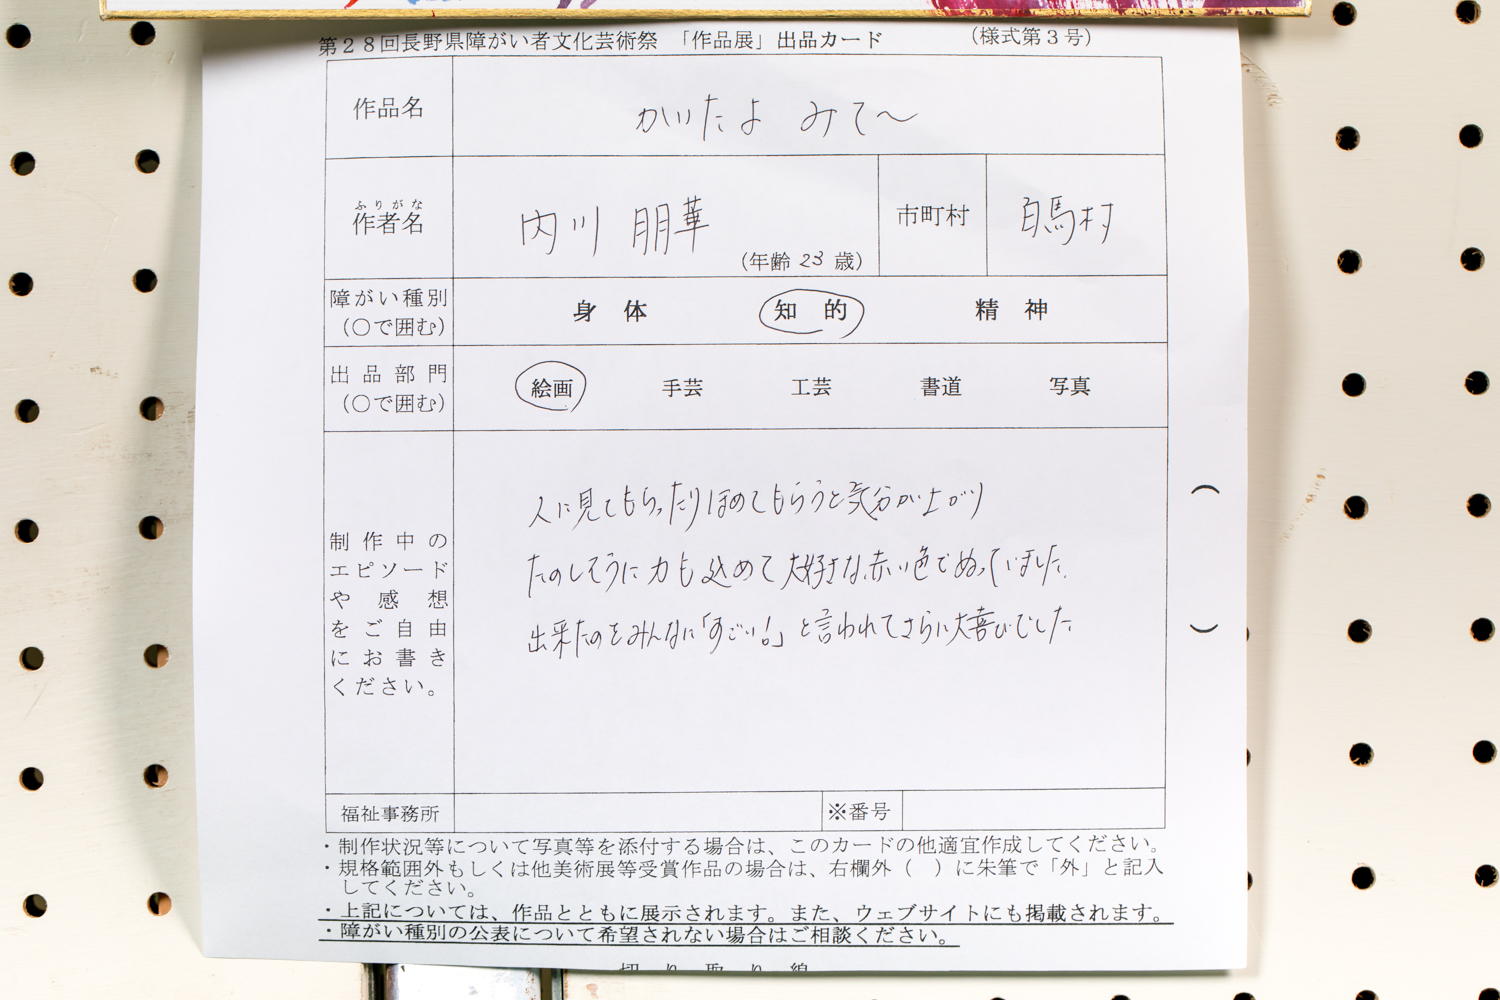 第28回長野県障がい者文化芸術祭 「作品展」出品カード （様式第3号）
作品名 かいたよ みて〜
ふりがな
作者名 内川 朋華 （年齢 23 歳） 市町村 白馬村
障がい種別 身体 知的 精神
（○で囲む）
出品部門 絵画 手芸 工芸 書道 写真
（○で囲む）
制作中の
エピソード
や感想
をご自由
にお書き
ください。
人に見てもらったりほめてもらうと気分が上がり
たのしそうに力も込めて大好きな赤い色でぬっていました。
出来たのをみんなに「すごい!」と言われてさらに大喜びでした
（ ）
福祉事務所 ※番号
・制作状況等について写真等を添付する場合は、このカードの他適宜作成してください。
・規格範囲外もしくは他美術展等受賞作品の場合は、右欄外（ ）に朱筆で「外」と記入
してください。
・上記については、作品とともに展示されます。また、ウェブサイトにも掲載されます。
・障がい種別の公表について希望されない場合はご相談ください。
切り取り線